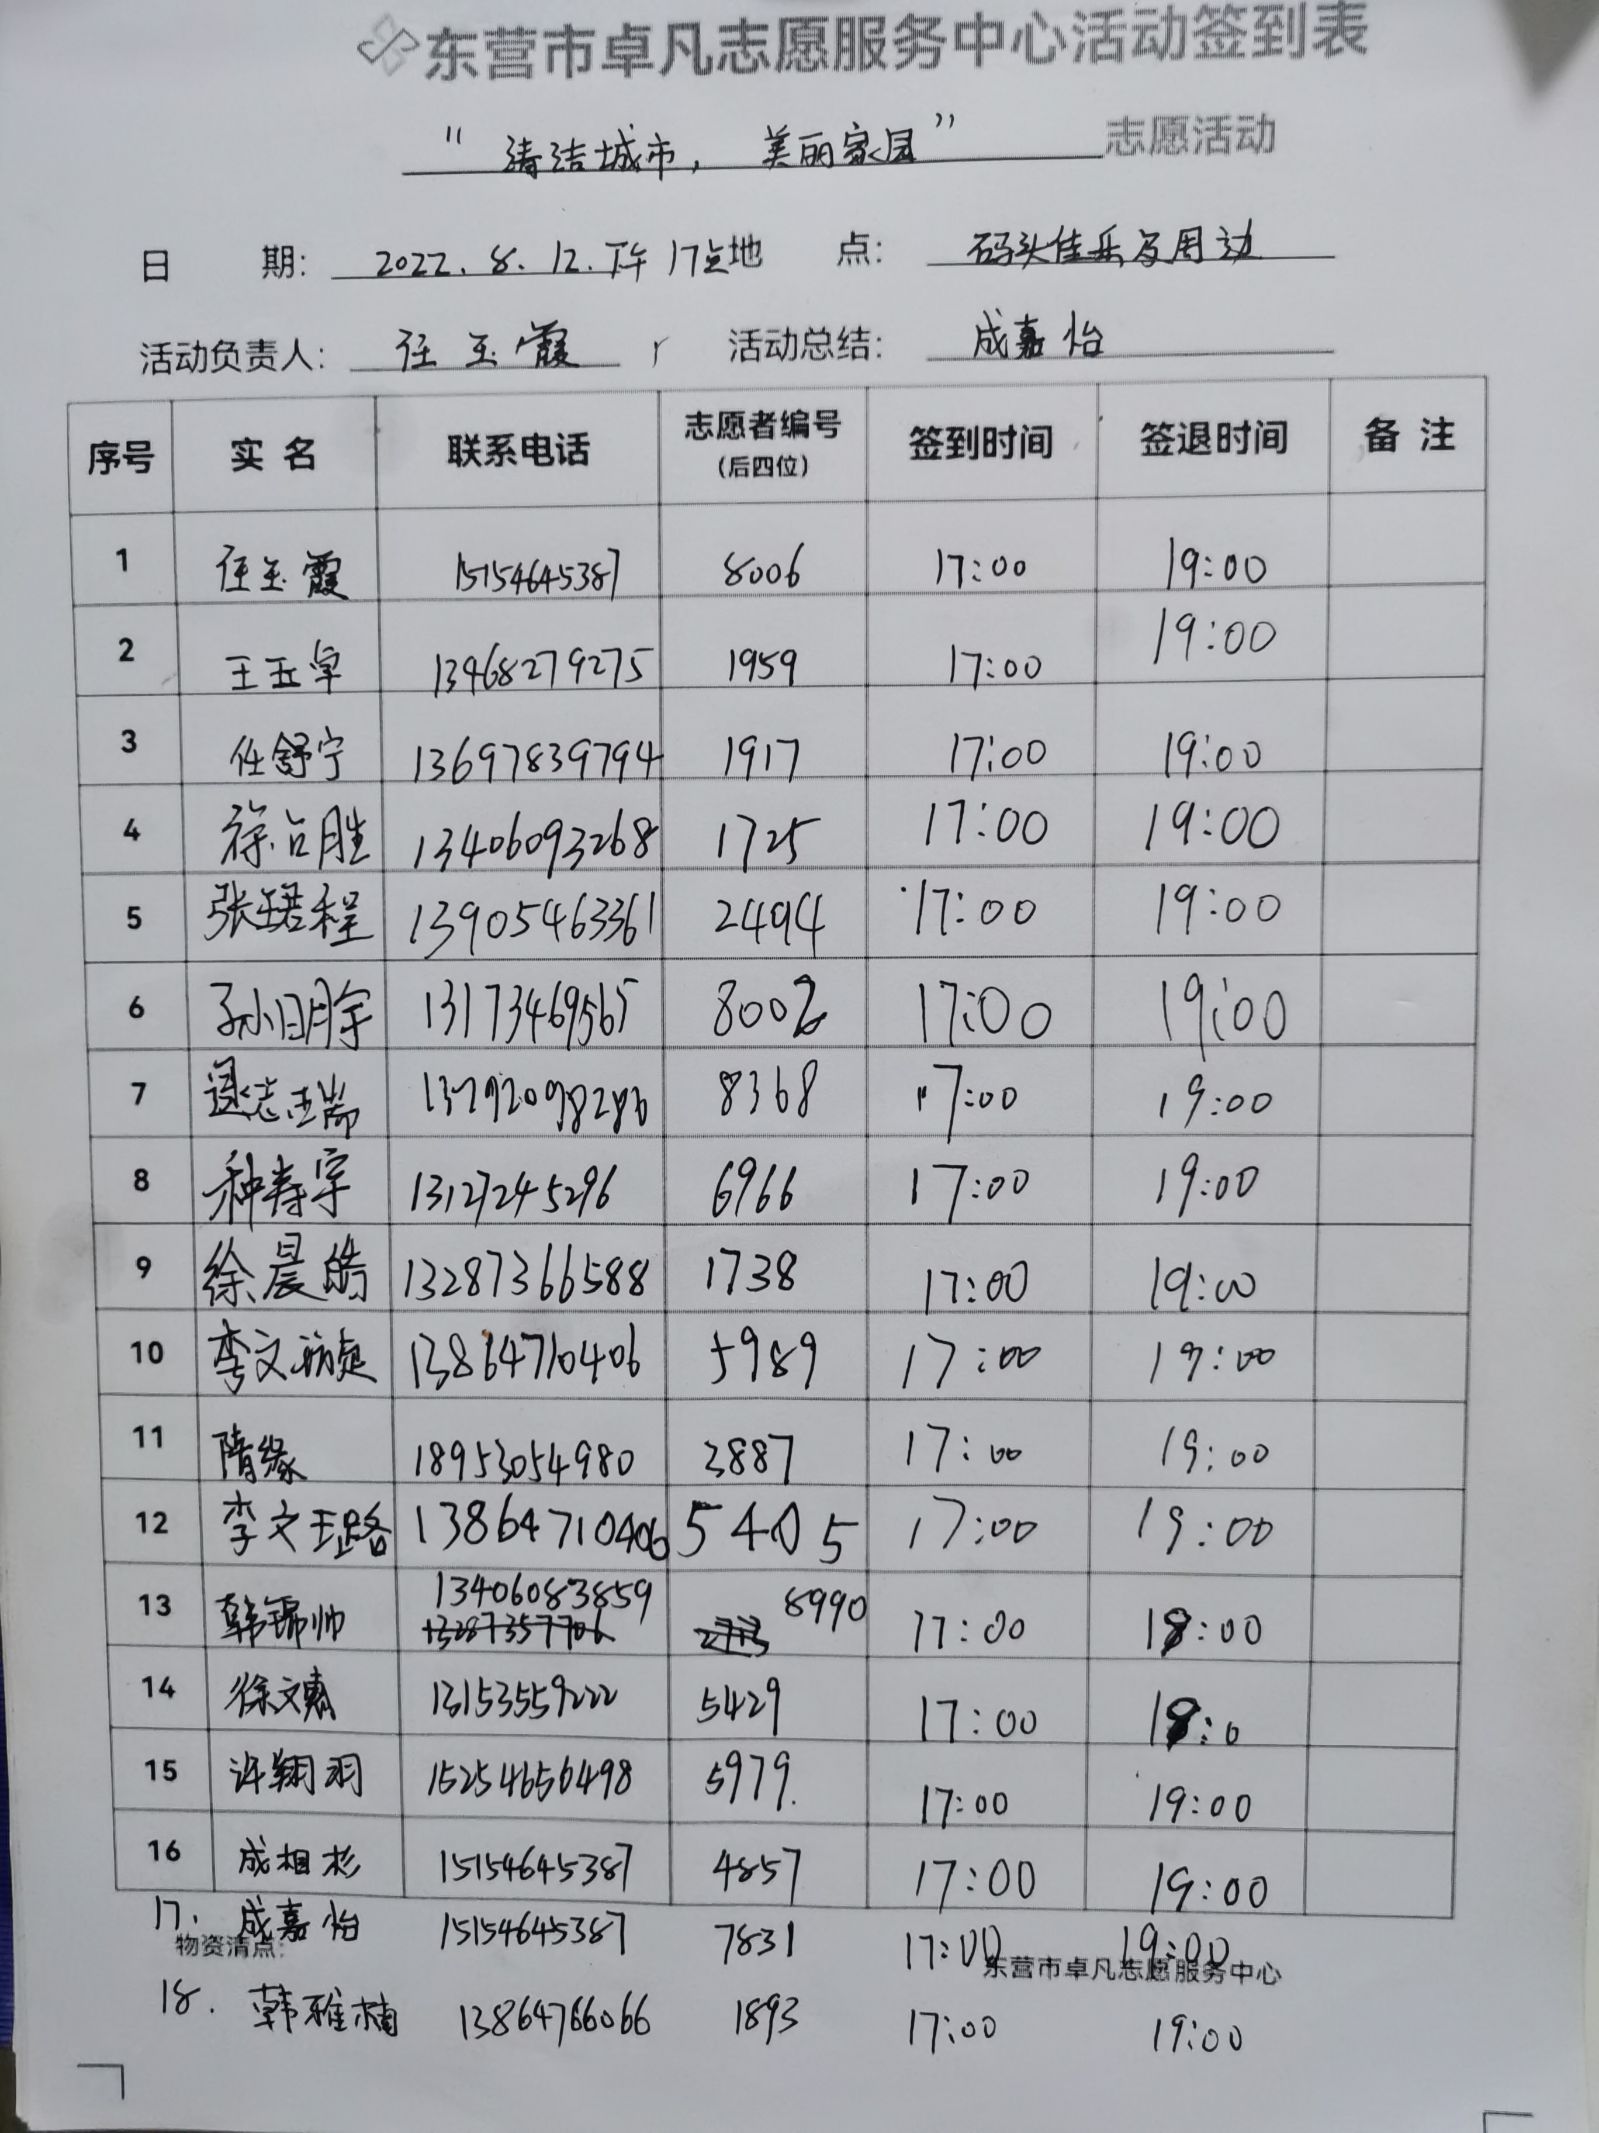 东营市卓凡志愿服务中心活动签到表
“清洁城市，美丽家园” 志愿活动
日 期: 2022.8.12.下午17点 地 点: 码头佳乐及周边
活动负责人: 任玉霞 活动总结: 成嘉怡
序号 实名 联系电话 志愿者编号(后四位) 签到时间 签退时间 备注
1 任玉霞 15154645387 8006 17:00 19:00
2 王玉卓 13468279275 1959 17:00 19:00
3 任舒宁 13697839794 1917 17:00 19:00
4 徐占胜 13406093268 1725 17:00 19:00
5 张珺程 13905463361 2494 17:00 19:00
6 孙明宇 13173469565 8002 17:00 19:00
7 13792098286 8368 17:00 19:00
8 种寿宇 13127245296 6966 17:00 19:00
9 徐晨皓 13287366588 1738 17:00 19:00
10 李文 13864710406 5989 17:00 19:00
11 隋缘 18953054980 3887 17:00 19:00
12 李文璐 13864710406 5405 17:00 19:00
13 韩锦帅 13406083859 8990 17:00 19:00
14 徐文 13153559222 5429 17:00
15 许翔羽 15254656498 5979. 17:00 19:00
16 成相杉 15154645387 4857 17:00 19:00
17. 成嘉怡 15154645387 7831 17:00 19:00
物资清点: 东营市卓凡志愿服务中心
18. 韩雅楠 13864766066 1893 17:00 19:00